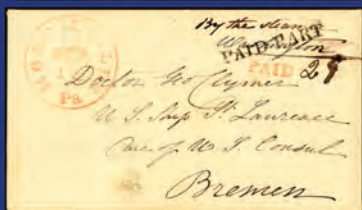 By the steamer
Washington
PAID PART
PAID 29
Doctor Geo Clymer
U S. Ship St. Lawrence
Care of U S. Consul
Bremen
Pa